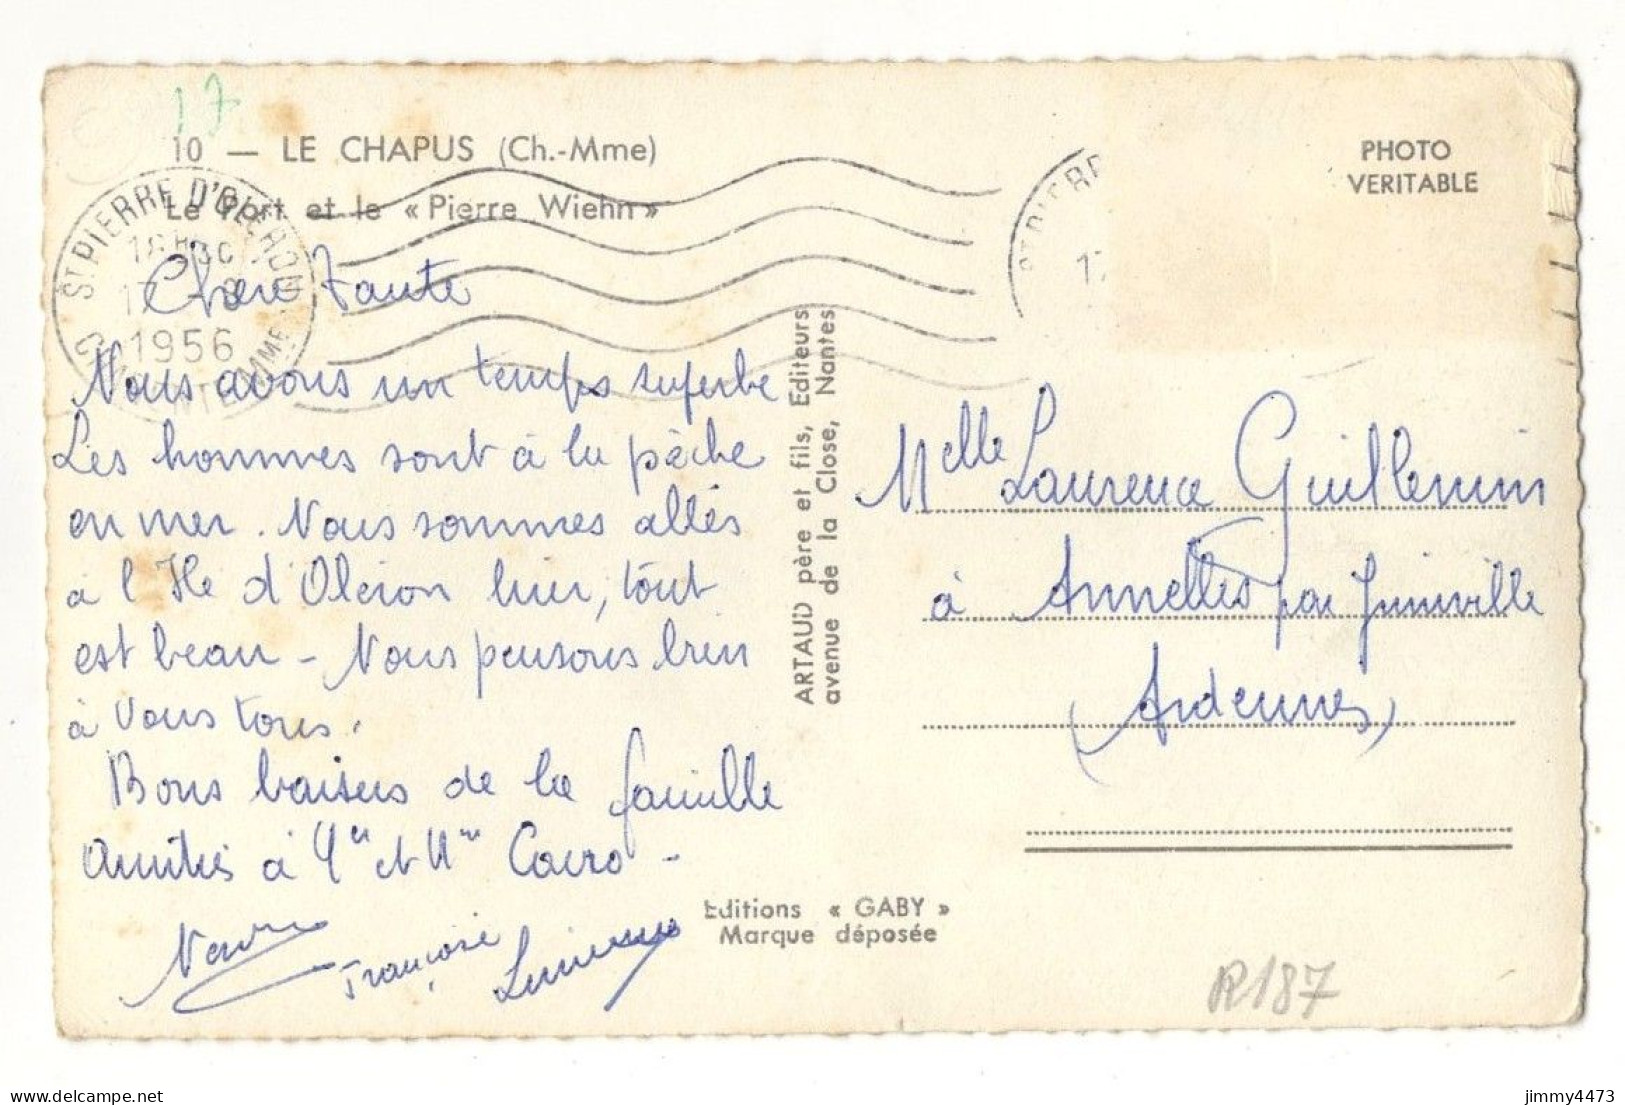 17
10 — LE CHAPUS (Ch.-Mme)
Le Port et le « Pierre Wiehn »
ST PIERRE D'OLERON
1956
ST PIERR
17
PHOTO
VERITABLE
Chere Tante
Nous avons un temps superbe
Les hommes sont à la pêche
en mer. Nous sommes allés
à l'Ile d'Oléron hier, tout
est beau – Nous pensons bien
à vous tous.
Bons baisers de la famille
Amitiés à Mr et Mme
Françoise
ARTAUD père et fils, Editeurs
avenue de la Close, Nantes
Melle Laurence Guillemin
à Annelles par Juniville
(Ardennes)
Editions « GABY »
Marque déposée
R187
jimmy4473